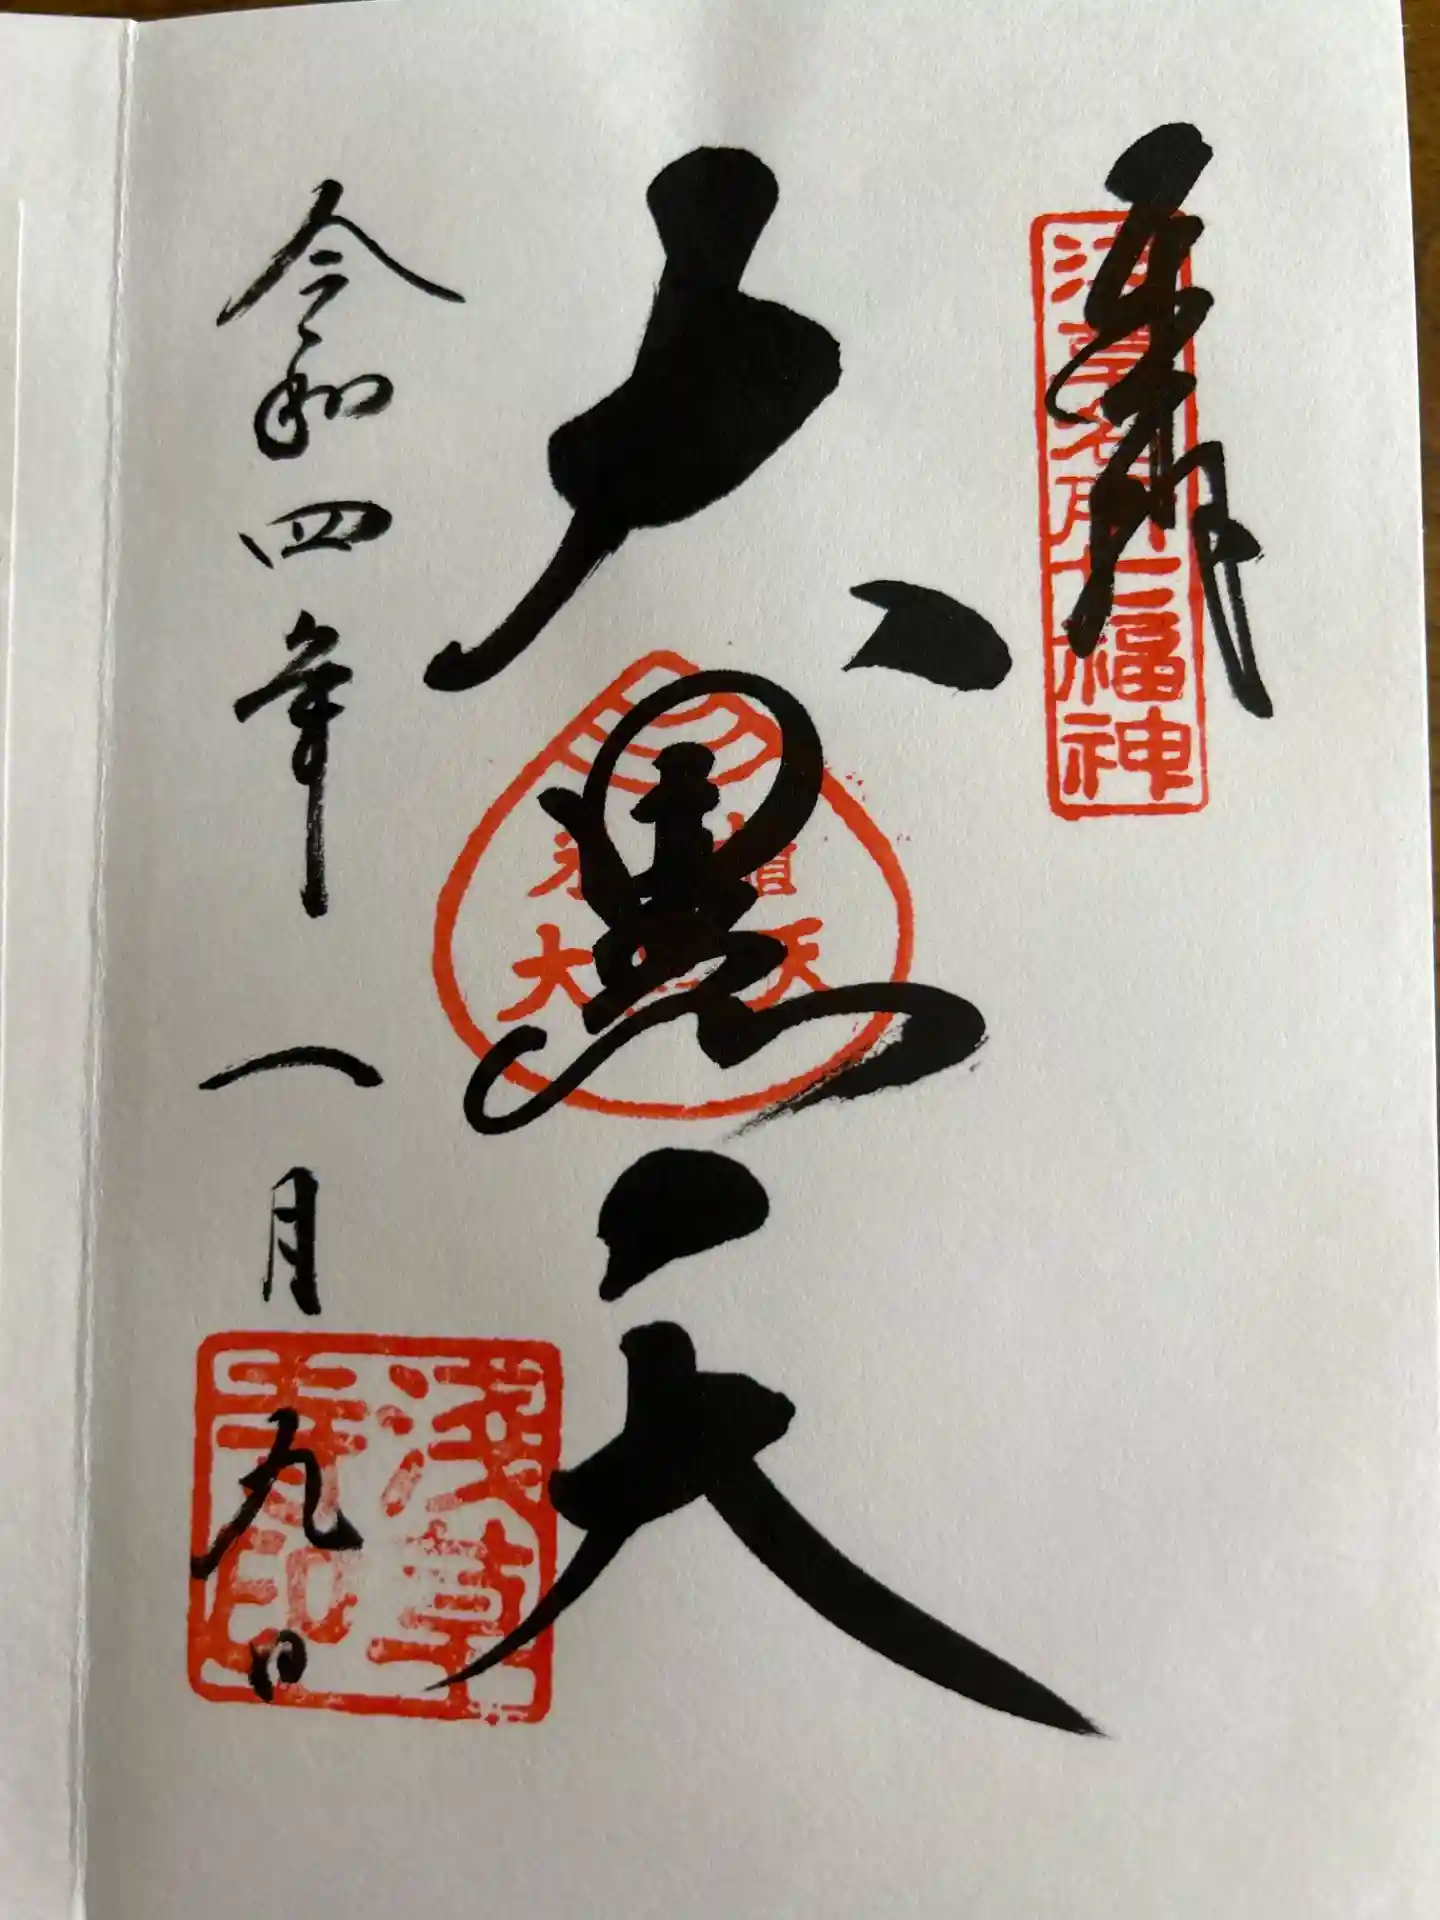 奉拝
浅草名所七福神
大黒天
米 楢
大 天
令和四年一月九日
浅草
寺印